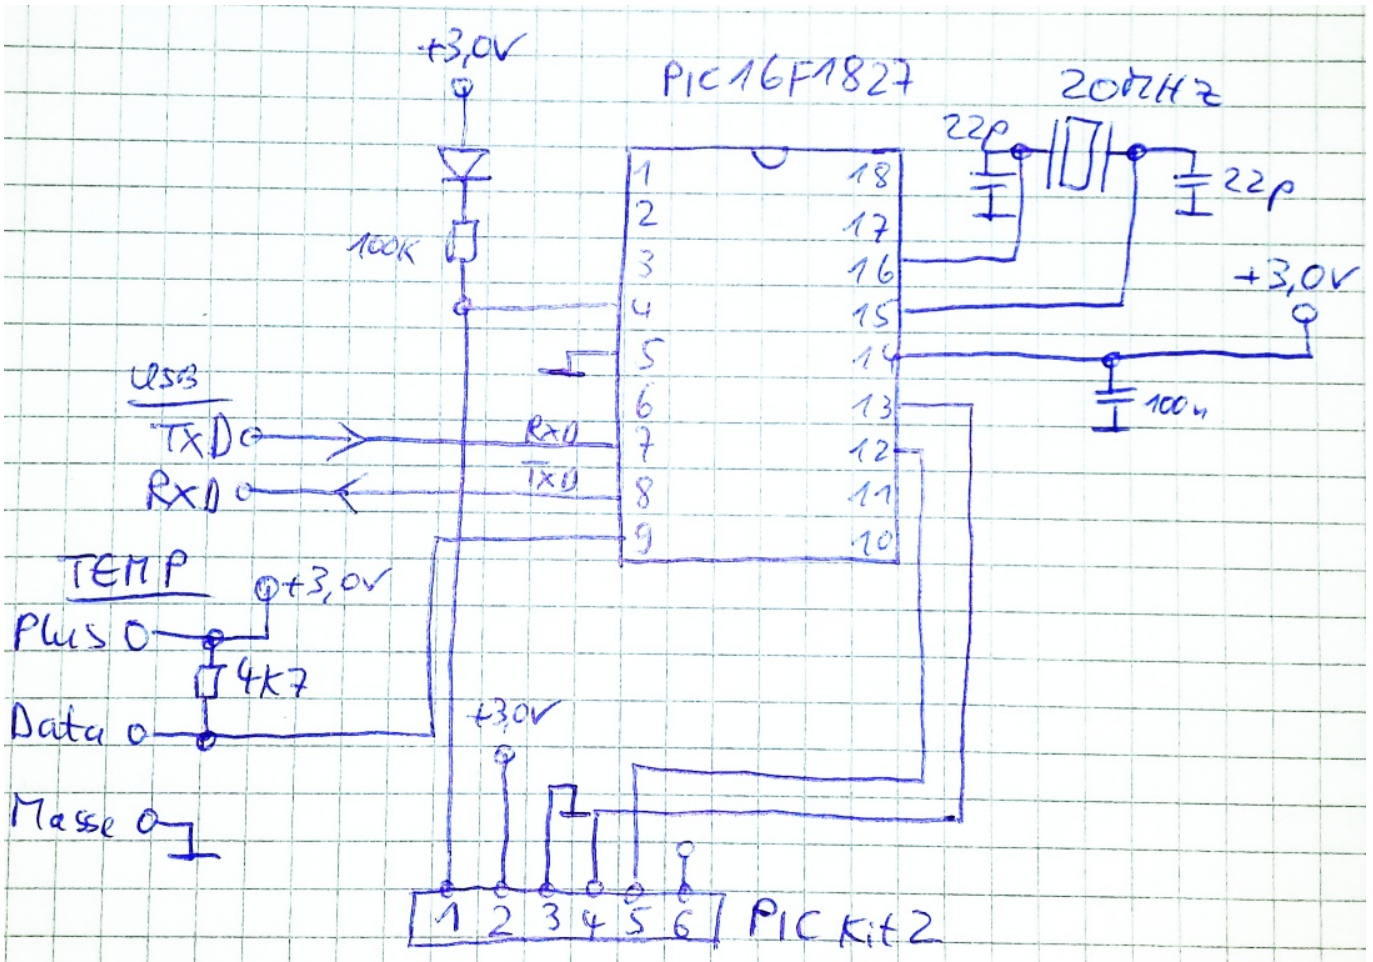 +3,0V
PIC16F1827
20MHz
22p
22p
100K
+3,0V
100n
1 18
2 17
3 16
4 15
5 14
6 13
7 12
8 11
9 10
USB
TxD RxD
RxD TxD
TEMP
+3,0V
Plus
4K7
Data
+3,0V
Masse
1 2 3 4 5 6 PIC Kit 2